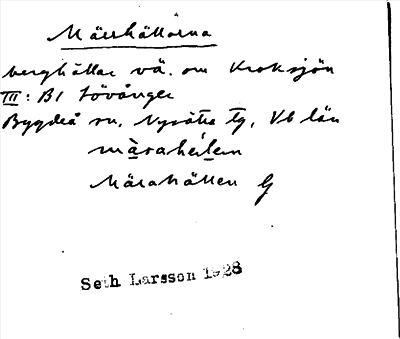 Märrhällorna
berghällar vä. om Kroksjön
III: B1 Lövånger
Bygdeå sn, Nysätra tg, Vb län
màrahélen
Märahällen G
Seth Larsson 1928